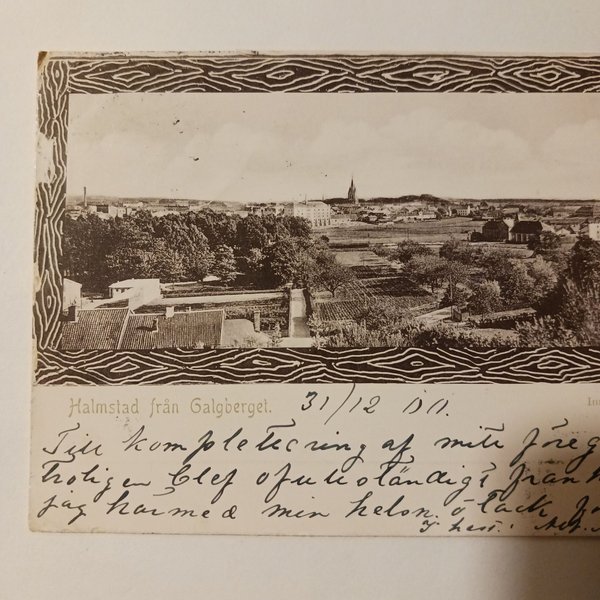 Halmstad från Galgberget. 31/12 00.
Till komplettering af mitt föreg
troligen blef ofullständigt från
jag härmed min helon. o tack fö
I hast: